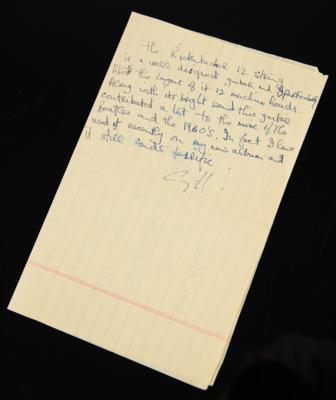 the Rickenbacker 12 string
is a well designed guitar and I particularly
like the layout of it 12 machine heads.
Along with its bright sound this guitar
contributed a lot to the music of the
Beatles and the 1960's. In fact I have
used it recently on my new album and
it still sounds terrific!